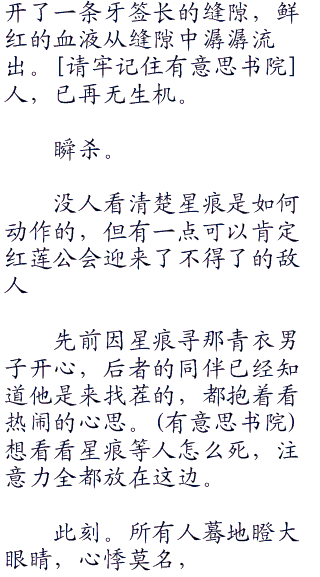 开了一条牙签长的缝隙，鲜
红的血液从缝隙中潺潺流
出。[请牢记住有意思书院]
人，已再无生机。
瞬杀。
没人看清楚星痕是如何
动作的，但有一点可以肯定
红莲公会迎来了不得了的敌
人
先前因星痕寻那青衣男
子开心，后者的同伴已经知
道他是来找茬的，都抱着看
热闹的心思。(有意思书院)
想看看星痕等人怎么死，注
意力全都放在这边。
此刻。所有人蓦地瞪大
眼睛，心悸莫名，